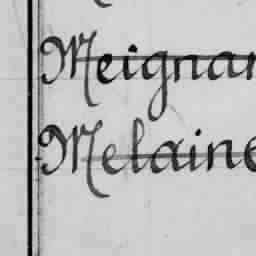 Meignan
Melaine